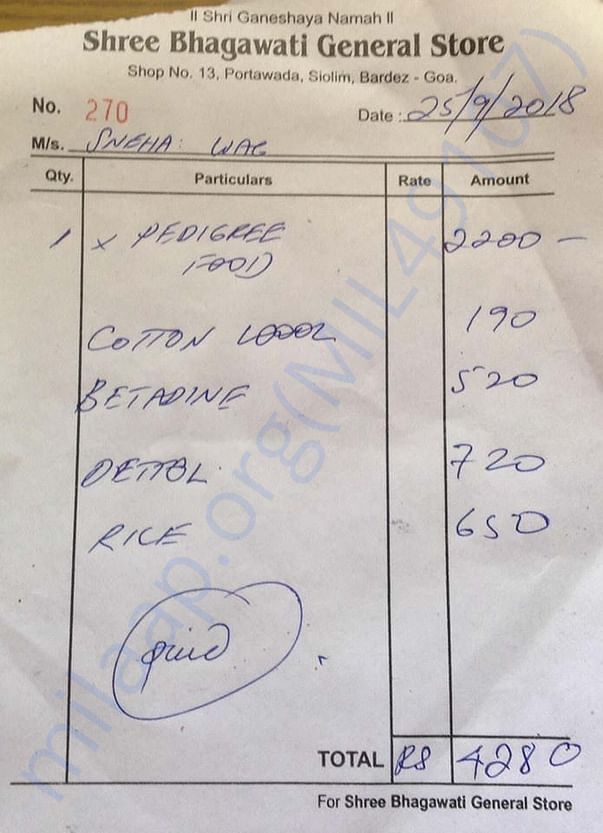 II Shri Ganeshaya Namah II
Shree Bhagawati General Store
Shop No. 13, Portawada, Siolim, Bardez - Goa.
No. 270 Date : 25/9/2018
M/s. SNEHA: WAG
Qty. Particulars Rate Amount
1 x PEDIGREE 2200 —
FOOD
COTTON WOOL 190
BETADINE 520
DETTOL. 720
RICE 650
paid
TOTAL RS 4280
For Shree Bhagawati General Store
milaap.org(MIL49107)